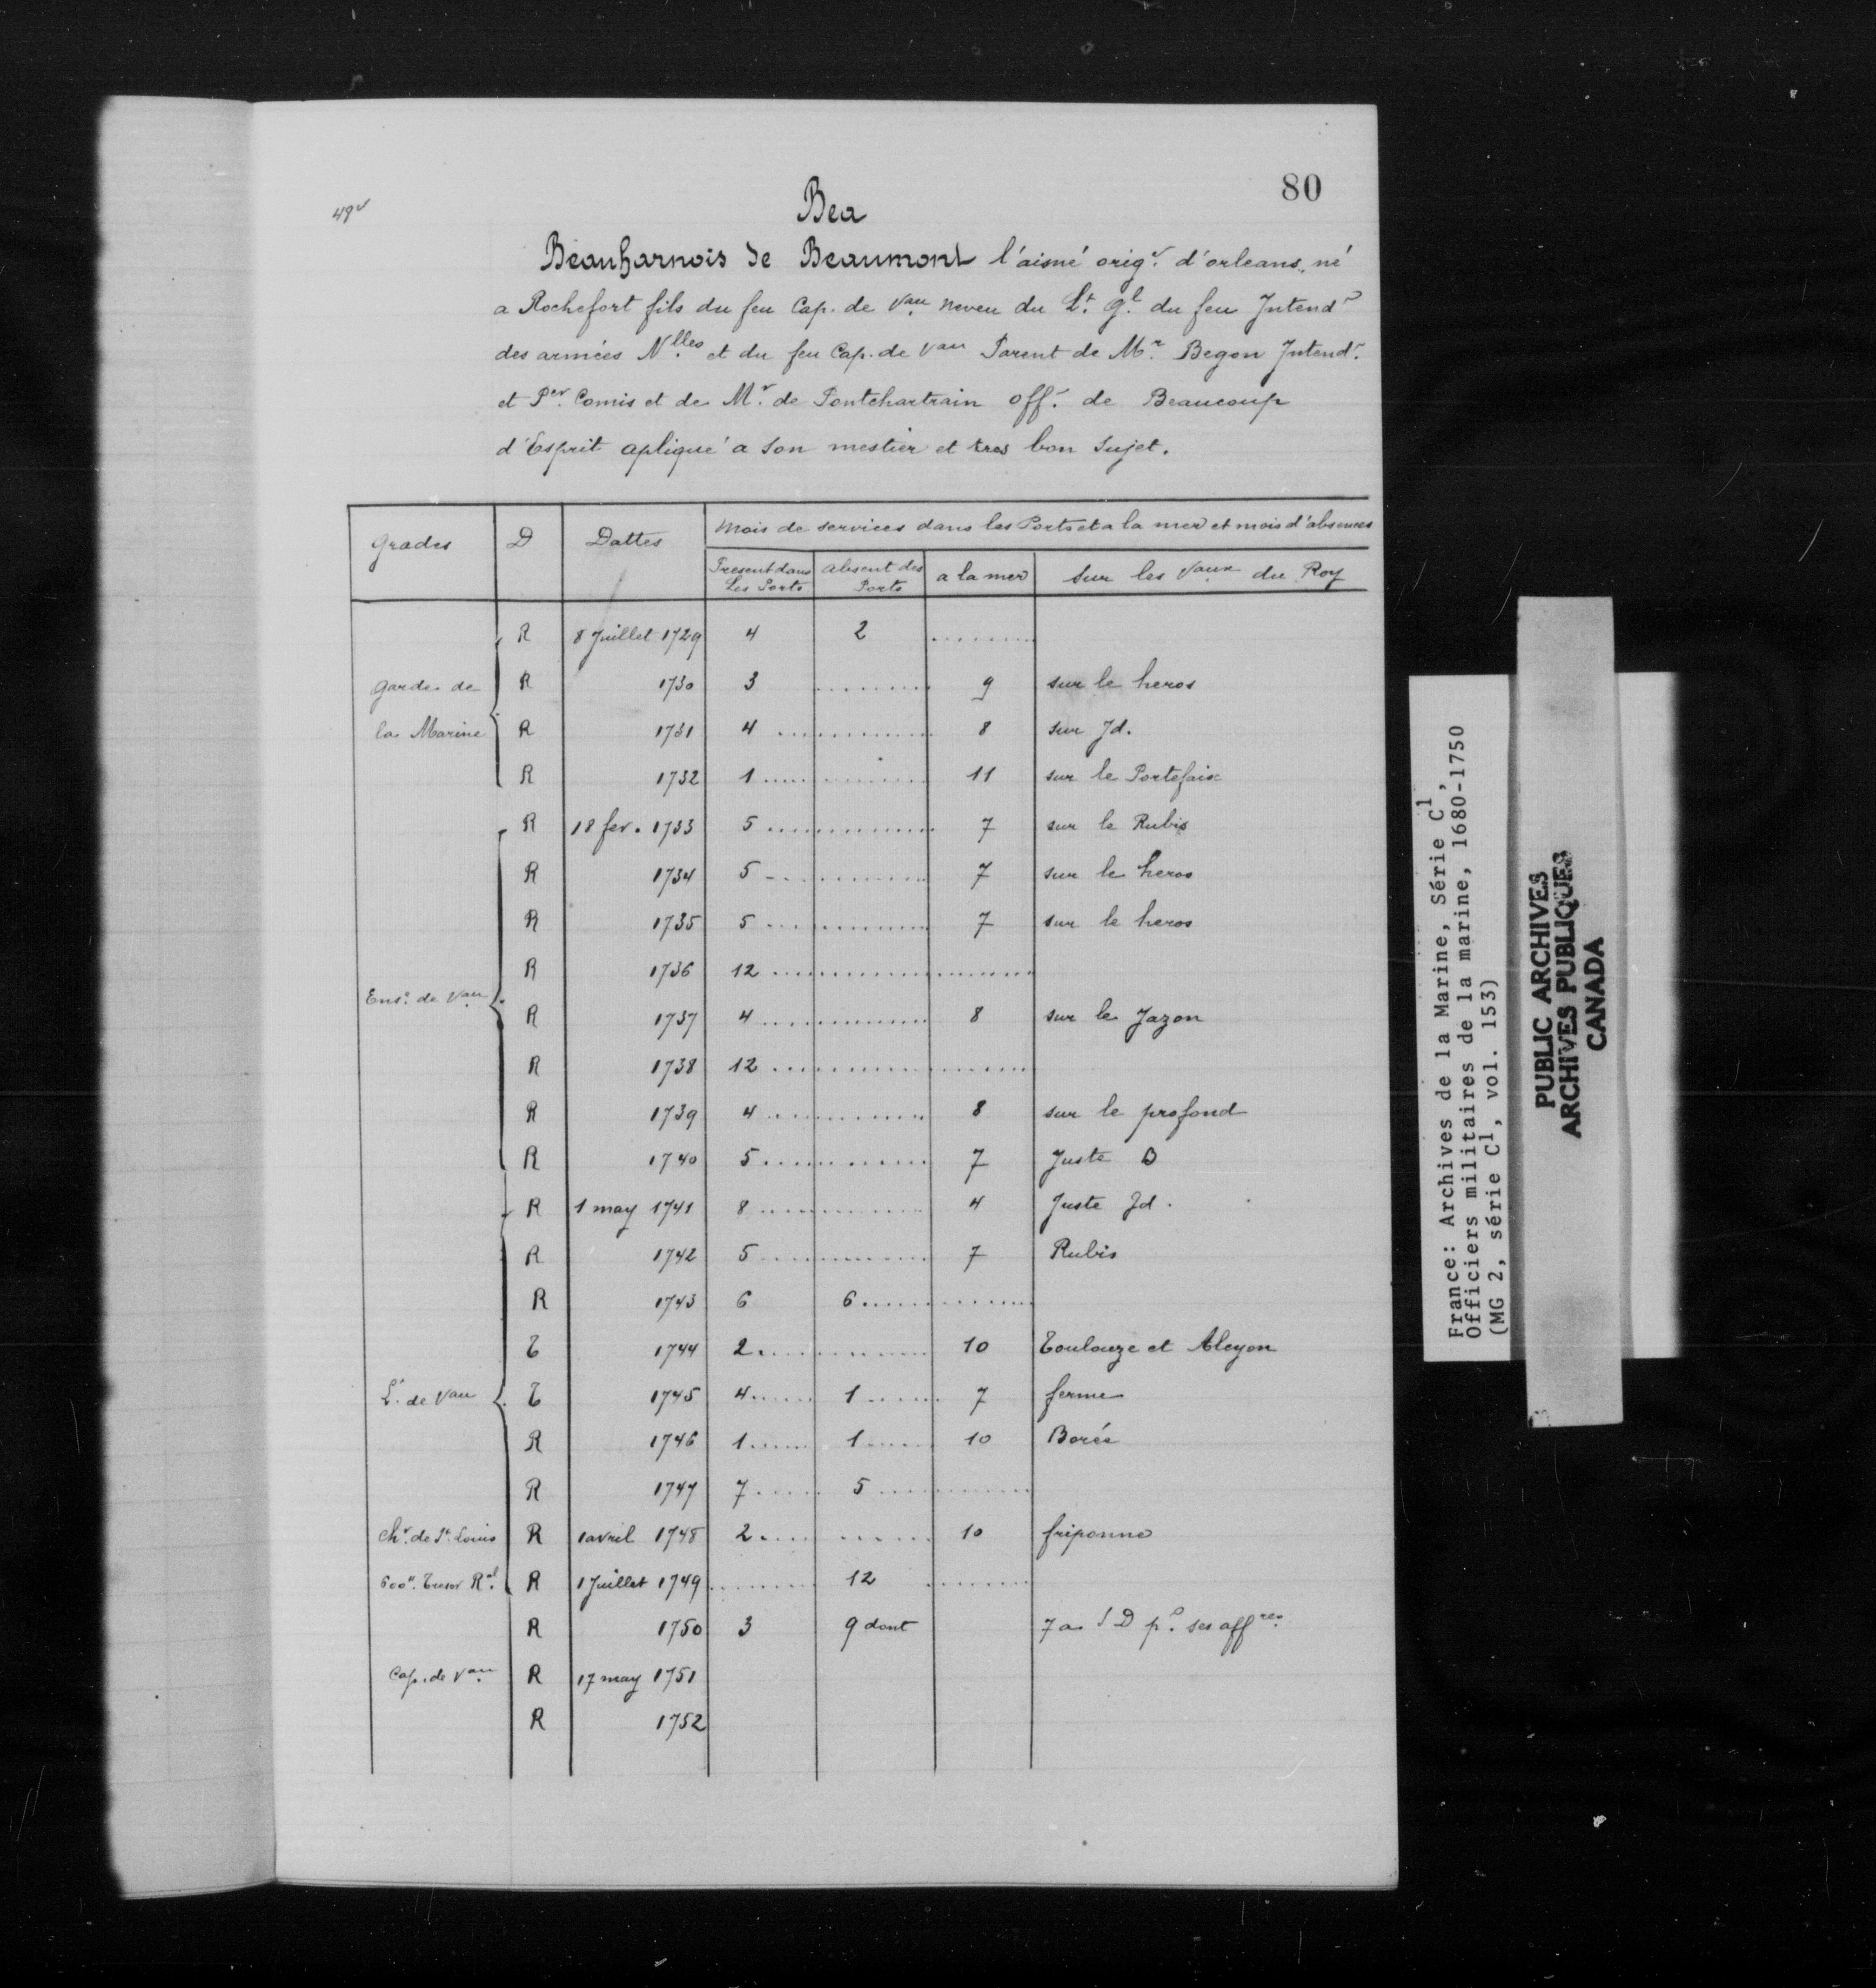 80
49v
Bea
Beauharnois de Beaumont l'aisné origr. d'orleans, né
a Rochefort fils du feu Cap. de Vau neveu du Lt. gl. du feu Intendr
des armées Nlles et du feu Cap. de Vau Parent de Mr. Begon Intendr.
et Per. Comis et de Mr. de Pontchartrain offr. de Beaucoup
d'Esprit apliqué a son mestier et tres bon Sujet.
Grades D Dattes Mois de services dans les Ports et a la mer et mois d'absences
Present dans Les Ports absent des Ports a la mer Sur les Vaux du Roy
R 8 Juillet 1729 4 2 ........
Garde de R 1730 3 ........ 9 sur le heros
la Marine R 1731 4 ........ 8 sur Jd.
R 1732 1 ........ 11 sur le Portefaix
R 18 fev. 1733 5 ........ 7 sur le Rubis
R 1734 5 ........ 7 sur le heros
R 1735 5 ........ 7 sur le heros
R 1736 12 ........
Ense. de Vau R 1737 4 ........ 8 sur le Jazon
R 1738 12 ........
R 1739 4 ........ 8 sur le profond
R 1740 5 ........ 7 Juste D
R 1 may 1741 8 ........ 4 Juste Jd.
R 1742 5 ........ 7 Rubis
R 1743 6 6 ........
T 1744 2 ........ 10 Toulouze et Alcyon
Lt. de Vau T 1745 4 ...... 1 ...... 7 ferme
R 1746 1 ...... 1 ...... 10 Borée
R 1747 7 ...... 5 ......
Chr. de St. Louis R 1 avril 1748 2 ........ 10 friponne
600tt. Tresor Ral. R 1 Juillet 1749 ........ 12 ........
R 1750 3 9 dont 7 a S D pr. ses affres.
Cap. de Vau. R 17 may 1751
R 1752
France: Archives de la Marine, Série C1,
Officiers militaires de la marine, 1680-1750
(MG 2, série C1, vol. 153)
PUBLIC ARCHIVES
ARCHIVES PUBLIQUES
CANADA